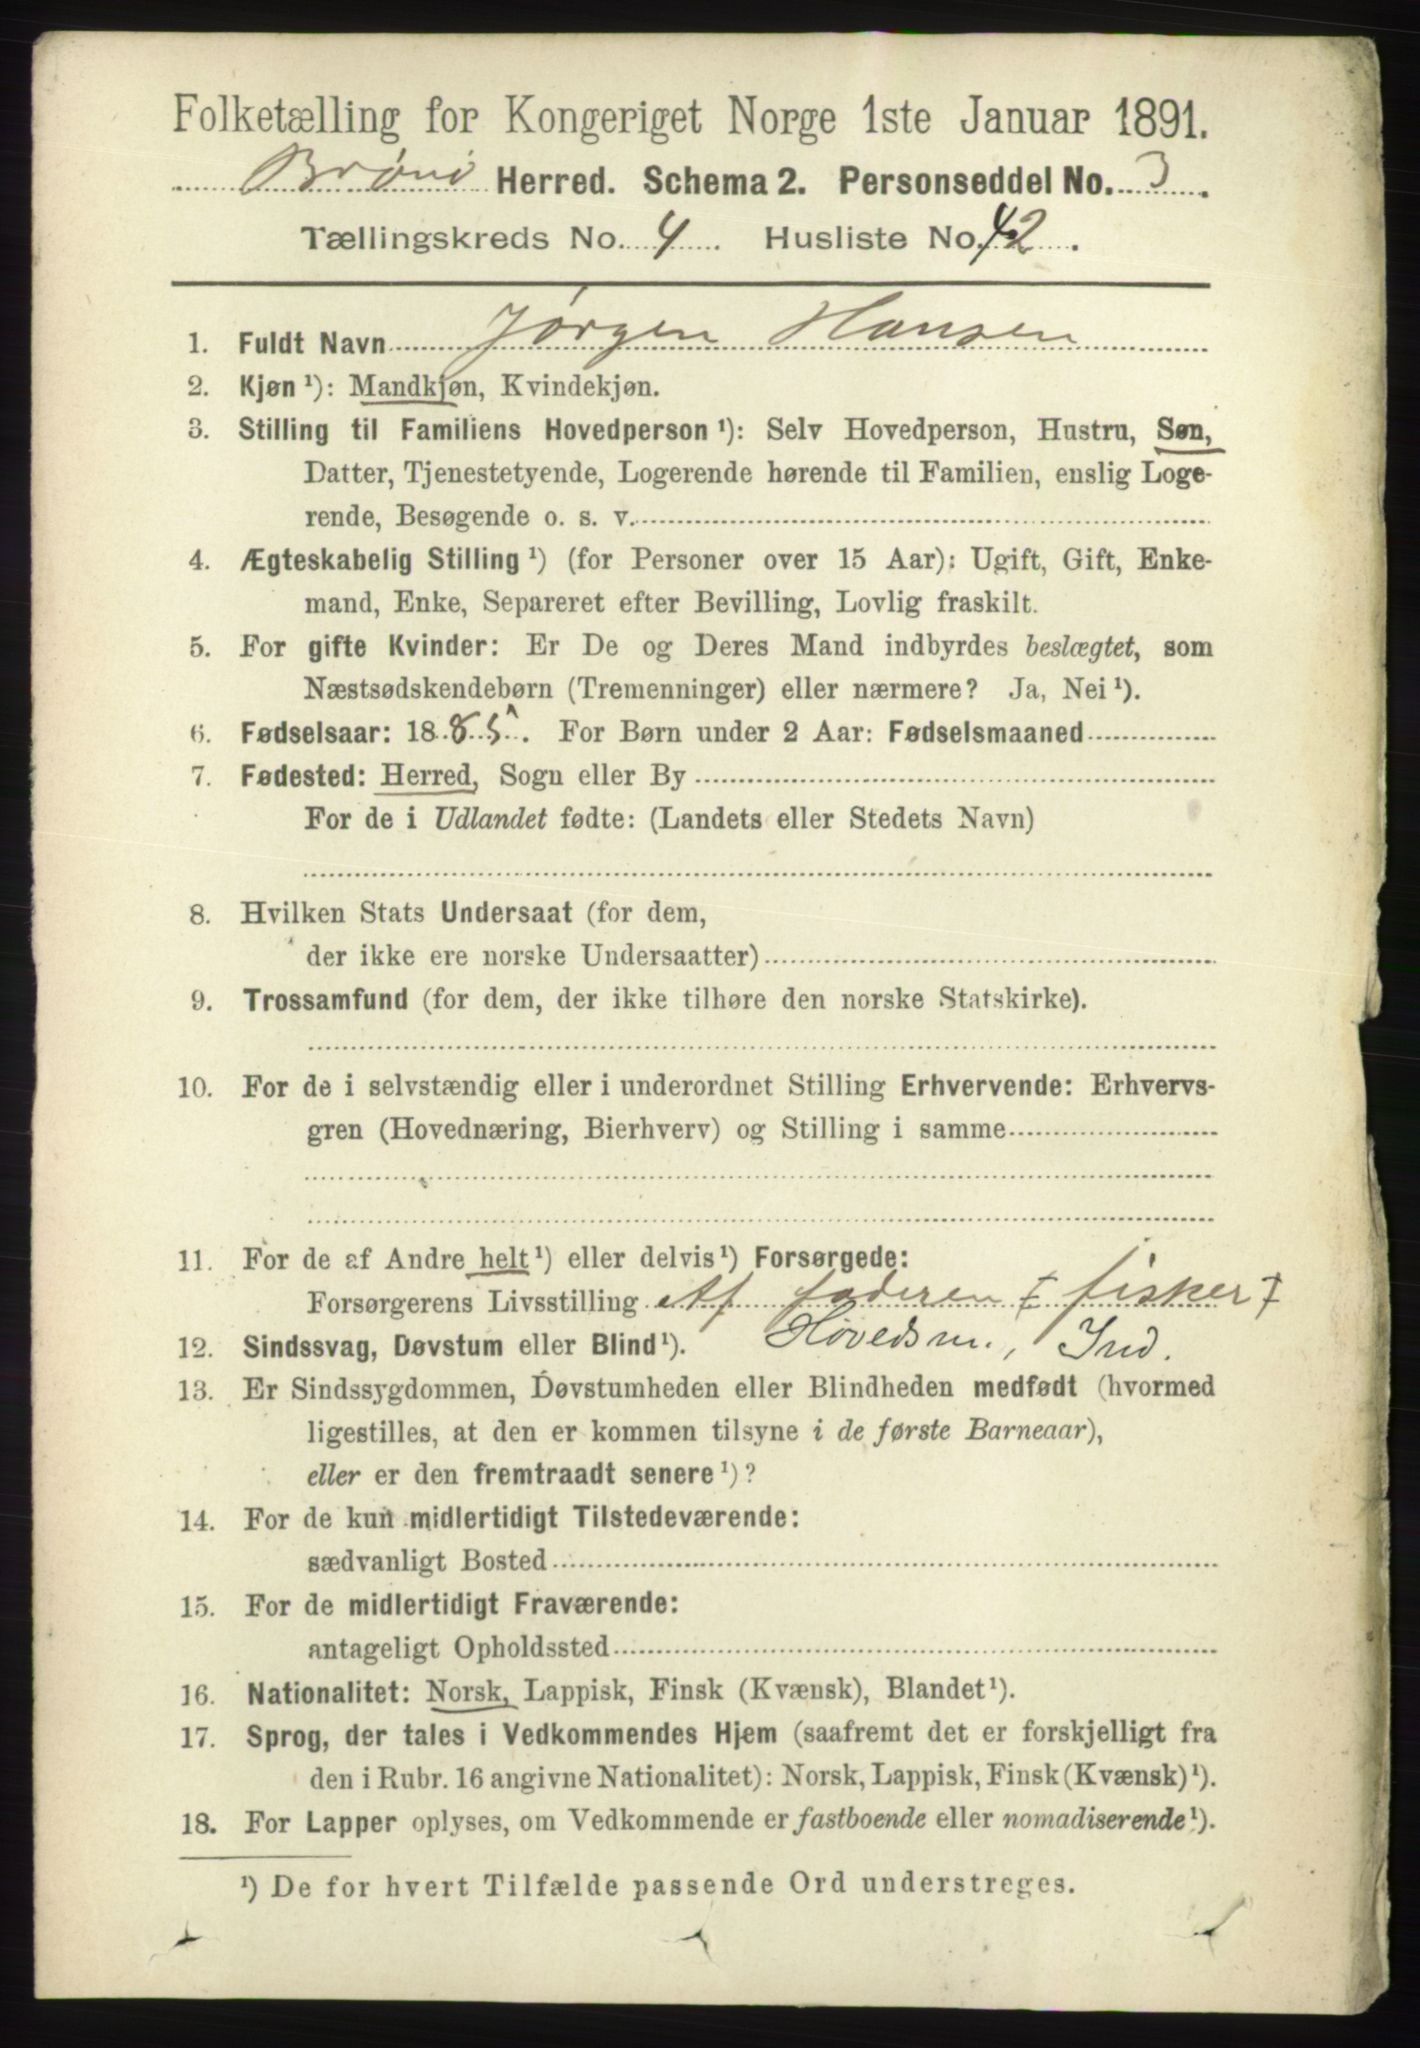 Folketælling for Kongeriget Norge 1ste Januar 1891.
Brönö Herred. Schema 2. Personseddel No. 3.
Tællingskreds No. 4. Husliste No. 42.
1. Fuldt Navn Jørgen Hansen
2. Kjøn ¹): Mandkjøn, Kvindekjøn.
3. Stilling til Familiens Hovedperson ¹): Selv Hovedperson, Hustru, Søn,
Datter, Tjenestetyende, Logerende hørende til Familien, enslig Loge-
rende, Besøgende o. s. v.
4. Ægteskabelig Stilling ¹) (for Personer over 15 Aar): Ugift, Gift, Enke-
mand, Enke, Separeret efter Bevilling, Lovlig fraskilt.
5. For gifte Kvinder: Er De og Deres Mand indbyrdes beslægtet, som
Næstsødskendebørn (Tremenninger) eller nærmere? Ja, Nei ¹).
6. Fødselsaar: 1885. For Børn under 2 Aar: Fødselsmaaned
7. Fødested: Herred, Sogn eller By
For de i Udlandet fødte: (Landets eller Stedets Navn)
8. Hvilken Stats Undersaat (for dem,
der ikke ere norske Undersaatter)
9. Trossamfund (for dem, der ikke tilhøre den norske Statskirke).
10. For de i selvstændig eller i underordnet Stilling Erhvervende: Erhvervs-
gren (Hovednæring, Bierhverv) og Stilling i samme
11. For de af Andre helt ¹) eller delvis ¹) Forsørgede:
Forsørgerens Livsstilling Af faderen ‡ fisker ‡
Hovedsm., Ind.
12. Sindssvag, Døvstum eller Blind ¹).
13. Er Sindssygdommen, Døvstumheden eller Blindheden medfødt (hvormed
ligestilles, at den er kommen tilsyne i de første Barneaar),
eller er den fremtraadt senere ¹)?
14. For de kun midlertidigt Tilstedeværende:
sædvanligt Bosted
15. For de midlertidigt Fraværende:
antageligt Opholdssted
16. Nationalitet: Norsk, Lappisk, Finsk (Kvænsk), Blandet ¹).
17. Sprog, der tales i Vedkommendes Hjem (saafremt det er forskjelligt fra
den i Rubr. 16 angivne Nationalitet): Norsk, Lappisk, Finsk (Kvænsk) ¹).
18. For Lapper oplyses, om Vedkommende er fastboende eller nomadiserende ¹).
¹) De for hvert Tilfælde passende Ord understreges.